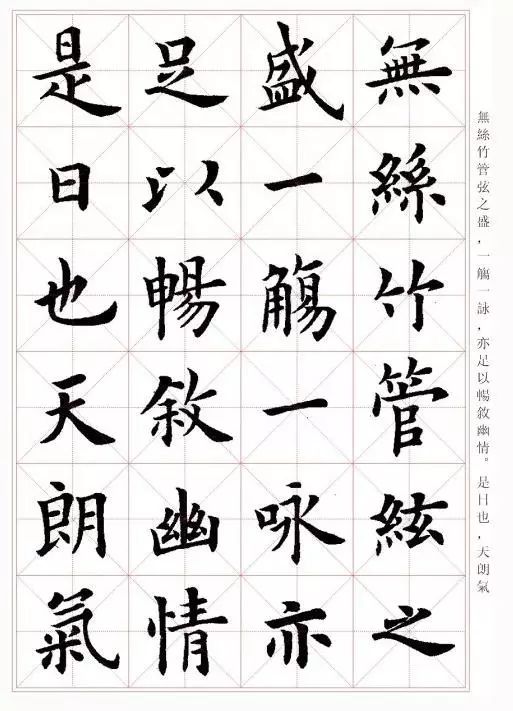 無絲竹管絃之
盛一觴一咏亦
足以暢敘幽情
是日也天朗氣
無絲竹管弦之盛，一觴一詠，亦足以暢敘幽情。是日也，天朗氣